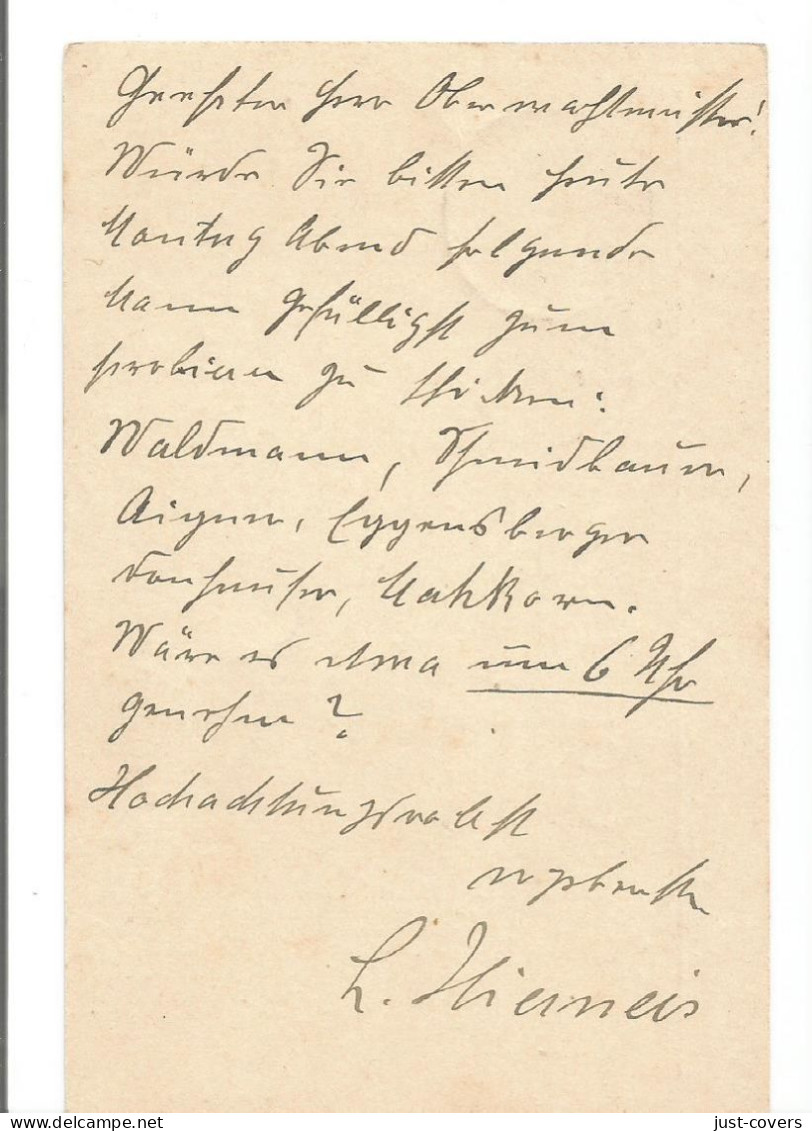 Geehrter Herr Oberwachtmeister!
Würde Sie bitten heute
Montag Abend folgende
Mann gefälligst zum
probieren zu schicken:
Waldmann, Schmidbauer,
Aigner, Eggensberger
Donhauser, Mahkorn.
Wäre es etwa um 6 Uhr
genehm?
Hochachtungsvollst
ergebenster
L. Hierneis
just-covers